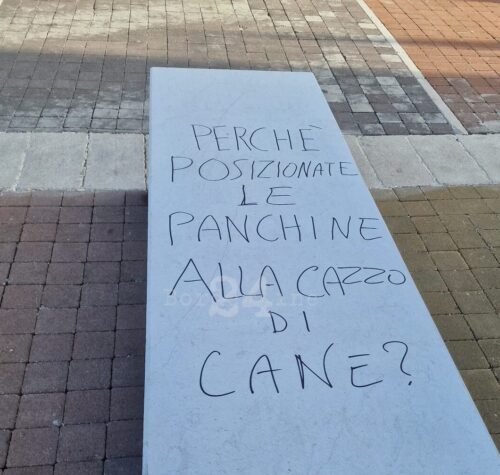 PERCHÈ
POSIZIONATE
LE
PANCHINE
ALLA CAZZO
DI
CANE?